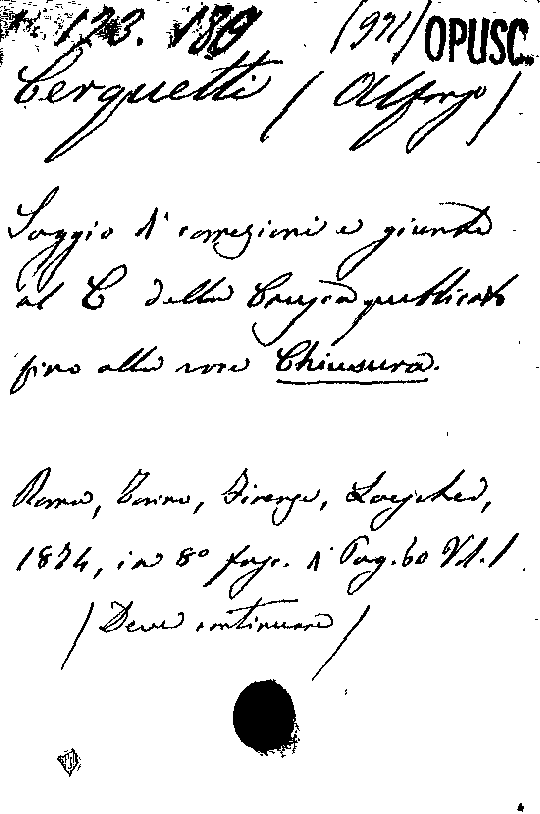 123. 189 (921) OPUSC.
Cerquetti (Alfonso)
Saggio di correzioni e giunte
al C della Crusca pubblicato
fino alla voce Chiusura.
Roma, Torino, Firenze, Loescher,
1874, in 8º fasc. di Pag. 60 Vol. 1
(Deve continuare)